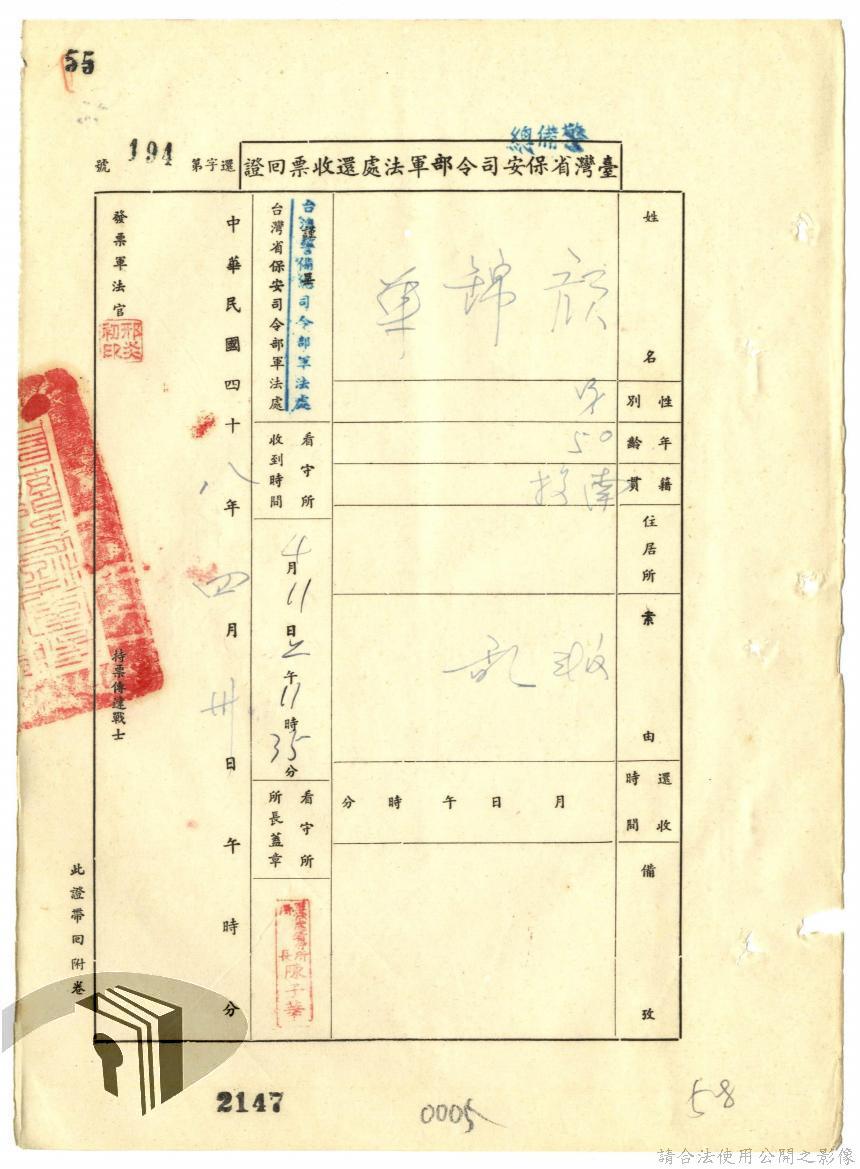 55
警備總
臺灣省保安司令部軍法處還收票回證
還字第194號
姓名
顏錦華
性別
男
年齡
50
籍貫
南投
住居所
案由
叛亂
還收時間
月 日 午 時 分
備攷
謹呈
台灣警備總司令部軍法處
台灣省保安司令部軍法處
看守所收到時間
4月11日上午11時35分
看守所所長蓋章
所長陳子華
中華民國四十八年四月卅日 午 時 分
發票軍法官
邢炎初印
持票傳達戰士
此證帶回附卷
2147
0005
58
請合法使用公開之影像